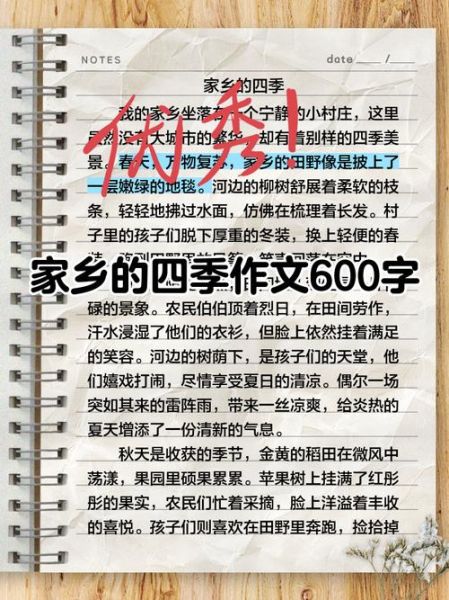 NOTES
date ____ /____
家乡的四季
我的家乡坐落在一个宁静的小村庄，这里
虽然没有大城市的繁华，却有着别样的四季美
优秀！
景。春天，万物复苏，家乡的田野像是披上了
一层嫩绿的地毯。河边的柳树舒展着柔软的枝
条，轻轻地拂过水面，仿佛在梳理着长发。村
子里的孩子们脱下厚重的冬装，换上轻便的春
家乡的四季作文600字
碌的景象。农民伯伯顶着烈日，在田间劳作，
汗水浸湿了他们的衣衫，但脸上依然挂着满足
的笑容。河边的树荫下，是孩子们的天堂，他
们嬉戏打闹，尽情享受夏日的清凉。偶尔一场
突如其来的雷阵雨，带来一丝凉爽，给炎热的
夏天增添了一份清新的气息。
秋天是收获的季节，金黄的稻田在微风中
荡漾，果园里硕果累累。苹果树上挂满了红彤
彤的果实，农民们忙着采摘，脸上洋溢着丰收
的喜悦。孩子们则喜欢在田野里奔跑，捡拾掉